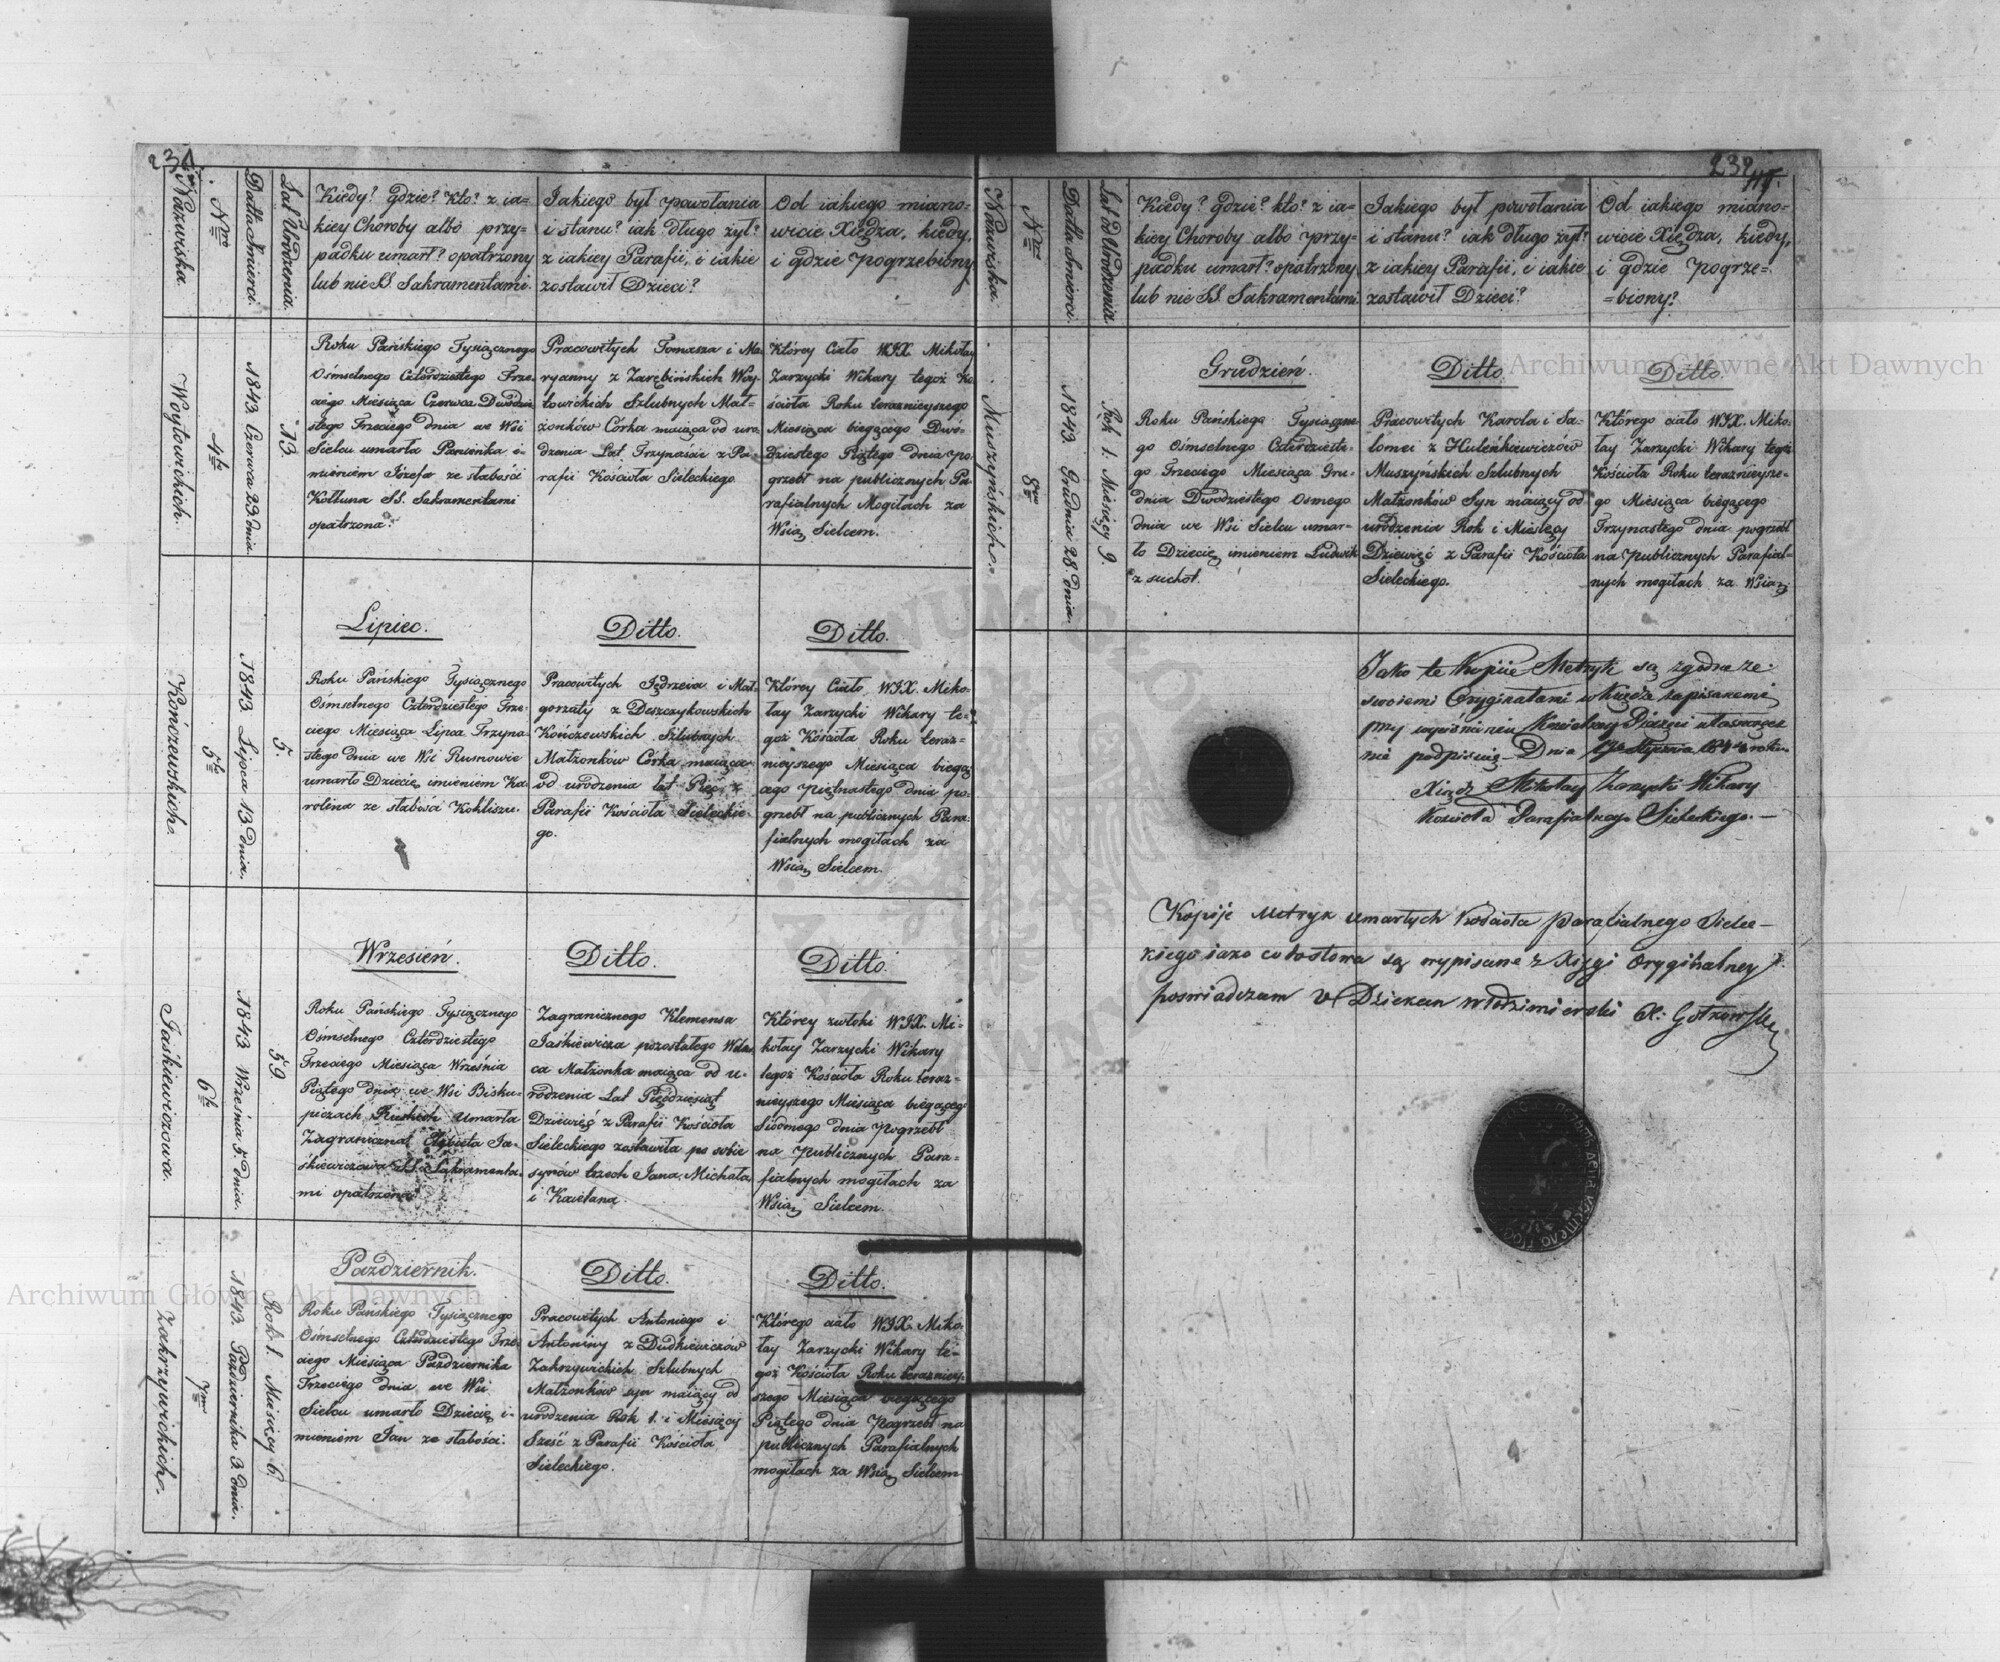 231.
Nazwiska.
Nro
Datta Śmierci.
Lat Urodzenia.
Kiedy? gdzie? kto? z ia-
kiey Choroby albo przy-
padku umarł? opatrzony
lub nie SS. Sakramentami.
Jakiego był powołania
i stanu? iak długo żył?
z iakiey Parafii, i iakie
zostawił Dzieci?
Od iakiego miano-
wicie Xiędza, kiedy,
i gdzie pogrzebiony
Woytowickich.
4te
1843 Czerwca 23 dnia
13.
Roku Pańskiego Tysiącznego
Ośmsetnego Czterdziestego Trze-
ciego Miesiąca Czerwca Dwudzie-
stego Trzeciego dnia we Wsi
Sielcu umarła Panienka i-
mieniem Józefa ze słabości
Kołtuna SS. Sakramentami
opatrzona.
Pracowitych Tomasza i Ma-
ryanny z Zarębińskich Woy-
towickich Szlubnych Mał-
żonków Córka maiąca od uro-
dzenia Lat Trzynaście z Pa-
rafii Kościoła Sieleckiego
Którey Ciało WJX. Mikołay
Zarzycki Wikary tegoż Ko-
ścioła Roku teraznieyszego
Miesiąca biegącego Dwó-
dziestego Piątego dnia po-
grzebł na publicznych Pa-
rafialnych Mogiłach za
Wsią Sielcem.
Kończewskich.
5te
1843 Lipca 13 dnia.
5.
Lipiec.
Roku Pańskiego Tysiącznego
Ośmsetnego Czterdziestego Trze-
ciego Miesiąca Lipca Trzyna-
stego dnia we Wsi Rusnowie
umarło Dziecię imieniem Ka-
rolina ze słabości Kokliszu.
Ditto.
Pracowitych Jędrzeia i Mał-
gorzaty z Deszczykowskich
Kończewskich Szlubnych
Małżonków Córka maiąca
od urodzenia lat Pięć z
Parafii Kościoła Sieleckie-
go.
Ditto.
Którey Ciało WJX. Miko-
łay Zarzycki Wikary te-
goż Kościoła Roku teraz-
nieyszego Miesiąca biegą-
cego piętnastego dnia po-
grzebł na publicznych Para-
fialnych mogiłach za
Wsią Sielcem.
Jaśkiewiczowa.
6te
1843 Wrześnią 5 dnia.
59
Wrzesień.
Roku Pańskiego Tysiącznego
Ośmsetnego Czterdziestego
Trzeciego Miesiąca Września
Piątego dnia we Wsi Bisku-
piczach Ruskich umarła
Zagraniczna Elżbieta Ja-
śkiewiczowa SS. Sakramenta-
mi opatrzona
Ditto.
Zagranicznego Klemensa
Jaśkiewicza pozostałego Wdow-
ca Małżonka maiąca od u-
rodzenia Lat Pięćdziesiąt
Dziewięć z Parafii Kościoła
Sieleckiego zostawiła po sobie
synów trzech Jana, Michała
i Kaietana.
Ditto.
Którey zwłoki WJX. Mi-
kołay Zarzycki Wikary
tegoż Kościoła Roku teraz-
nieyszego Miesiąca biegącego
Siódmego dnia pogrzebł
na publicznych Para-
fialnych mogiłach za
Wsią Sielcem.
Zakrzywickich.
7me
1843. Października 3 dnia.
Rok 1. Miesięcy 6.
Październik.
Roku Pańskiego Tysiącznego
Ośmsetnego Czterdziestego Trze-
ciego Miesiąca Października
Trzeciego dnia we Wsi
Sielcu umarło Dziecię i-
mieniem Jan ze słabości.
Ditto.
Pracowitych Antoniego i
Antoniny z Dudkiewiczów
Zakrzywickich Szlubnych
Małżonków syn maiący od
urodzenia Rok 1. i Miesięcy
Sześć z Parafii Kościoła
Sieleckiego.
Ditto.
Którego ciało WJX. Miko-
łay Zarzycki Wikary te-
goż Kościoła Roku terazniey-
szego Miesiąca biegącego
Piątego dnia Pogrzebł na
publicznych Parafialnych
mogiłach za Wsią Sielcem
232
Nazwiska.
Nro
Datta Smierci.
Lat od Urodzenia
Kiedy? gdzie? kto? z ia-
kiey Choroby albo przy-
padku umarł? opatrzony
lub nie SS. Sakramentami
Jakiego był powołania
i stanu? iak długo żył?
z iakiey Parafii, i iakie
zostawił Dzieci?
Od iakiego miano-
wicie Xiędza, kiedy,
i gdzie pogrze-
biony?
Muszyńskich.
8me
1843. Grudnia 28 dnia.
Rok 1. Miesięcy 9.
Grudzień.
Roku Pańskiego Tysiączne-
go Ośmsetnego Czterdzieste-
go Trzeciego Miesiąca Gru-
dnia Dwódziestego Osmego
dnia we Wsi Sielcu umar-
ło Dziecię imieniem Ludwik
z suchot.
Ditto.
Pracowitych Karola i Sa-
lomei z Huleńkiewiczów
Muszyńskich Szlubnych
Małżonków Syn maiący od
urodzenia Rok i Miesięcy
Dziewięć z Parafii Kościoła
Sieleckiego.
Ditto.
Którego ciało WJX. Miko-
łay Zarzycki Wikary tegoż
Kościoła Roku teraznieysze-
go Miesiąca biegącego
Trzynastego dnia pogrzebł
na publicznych Parafial-
nych mogiłach za Wsią
Jako te kopiie Metryk są zgodne ze
swoiemi Oryginałami w księdze zapisanemi
przy wyciśnieniu Kościelney Pieczęci własnoręcz
nie podpisuię. Dnia Stycznia 1844 roku.
Xiądz Mikołay Zarzycki Wikary
Kościoła Parafialnego Sieleckiego.
Kopije Metryk umarłych Kościoła Parafialnego Siele-
kiego iako co do słowa są wypisane z Xięgi Oryginalney
poswiadczam Dziekan Włodzimierski X:
Archiwum Główne Akt Dawnych
Archiwum Główne Akt Dawnych